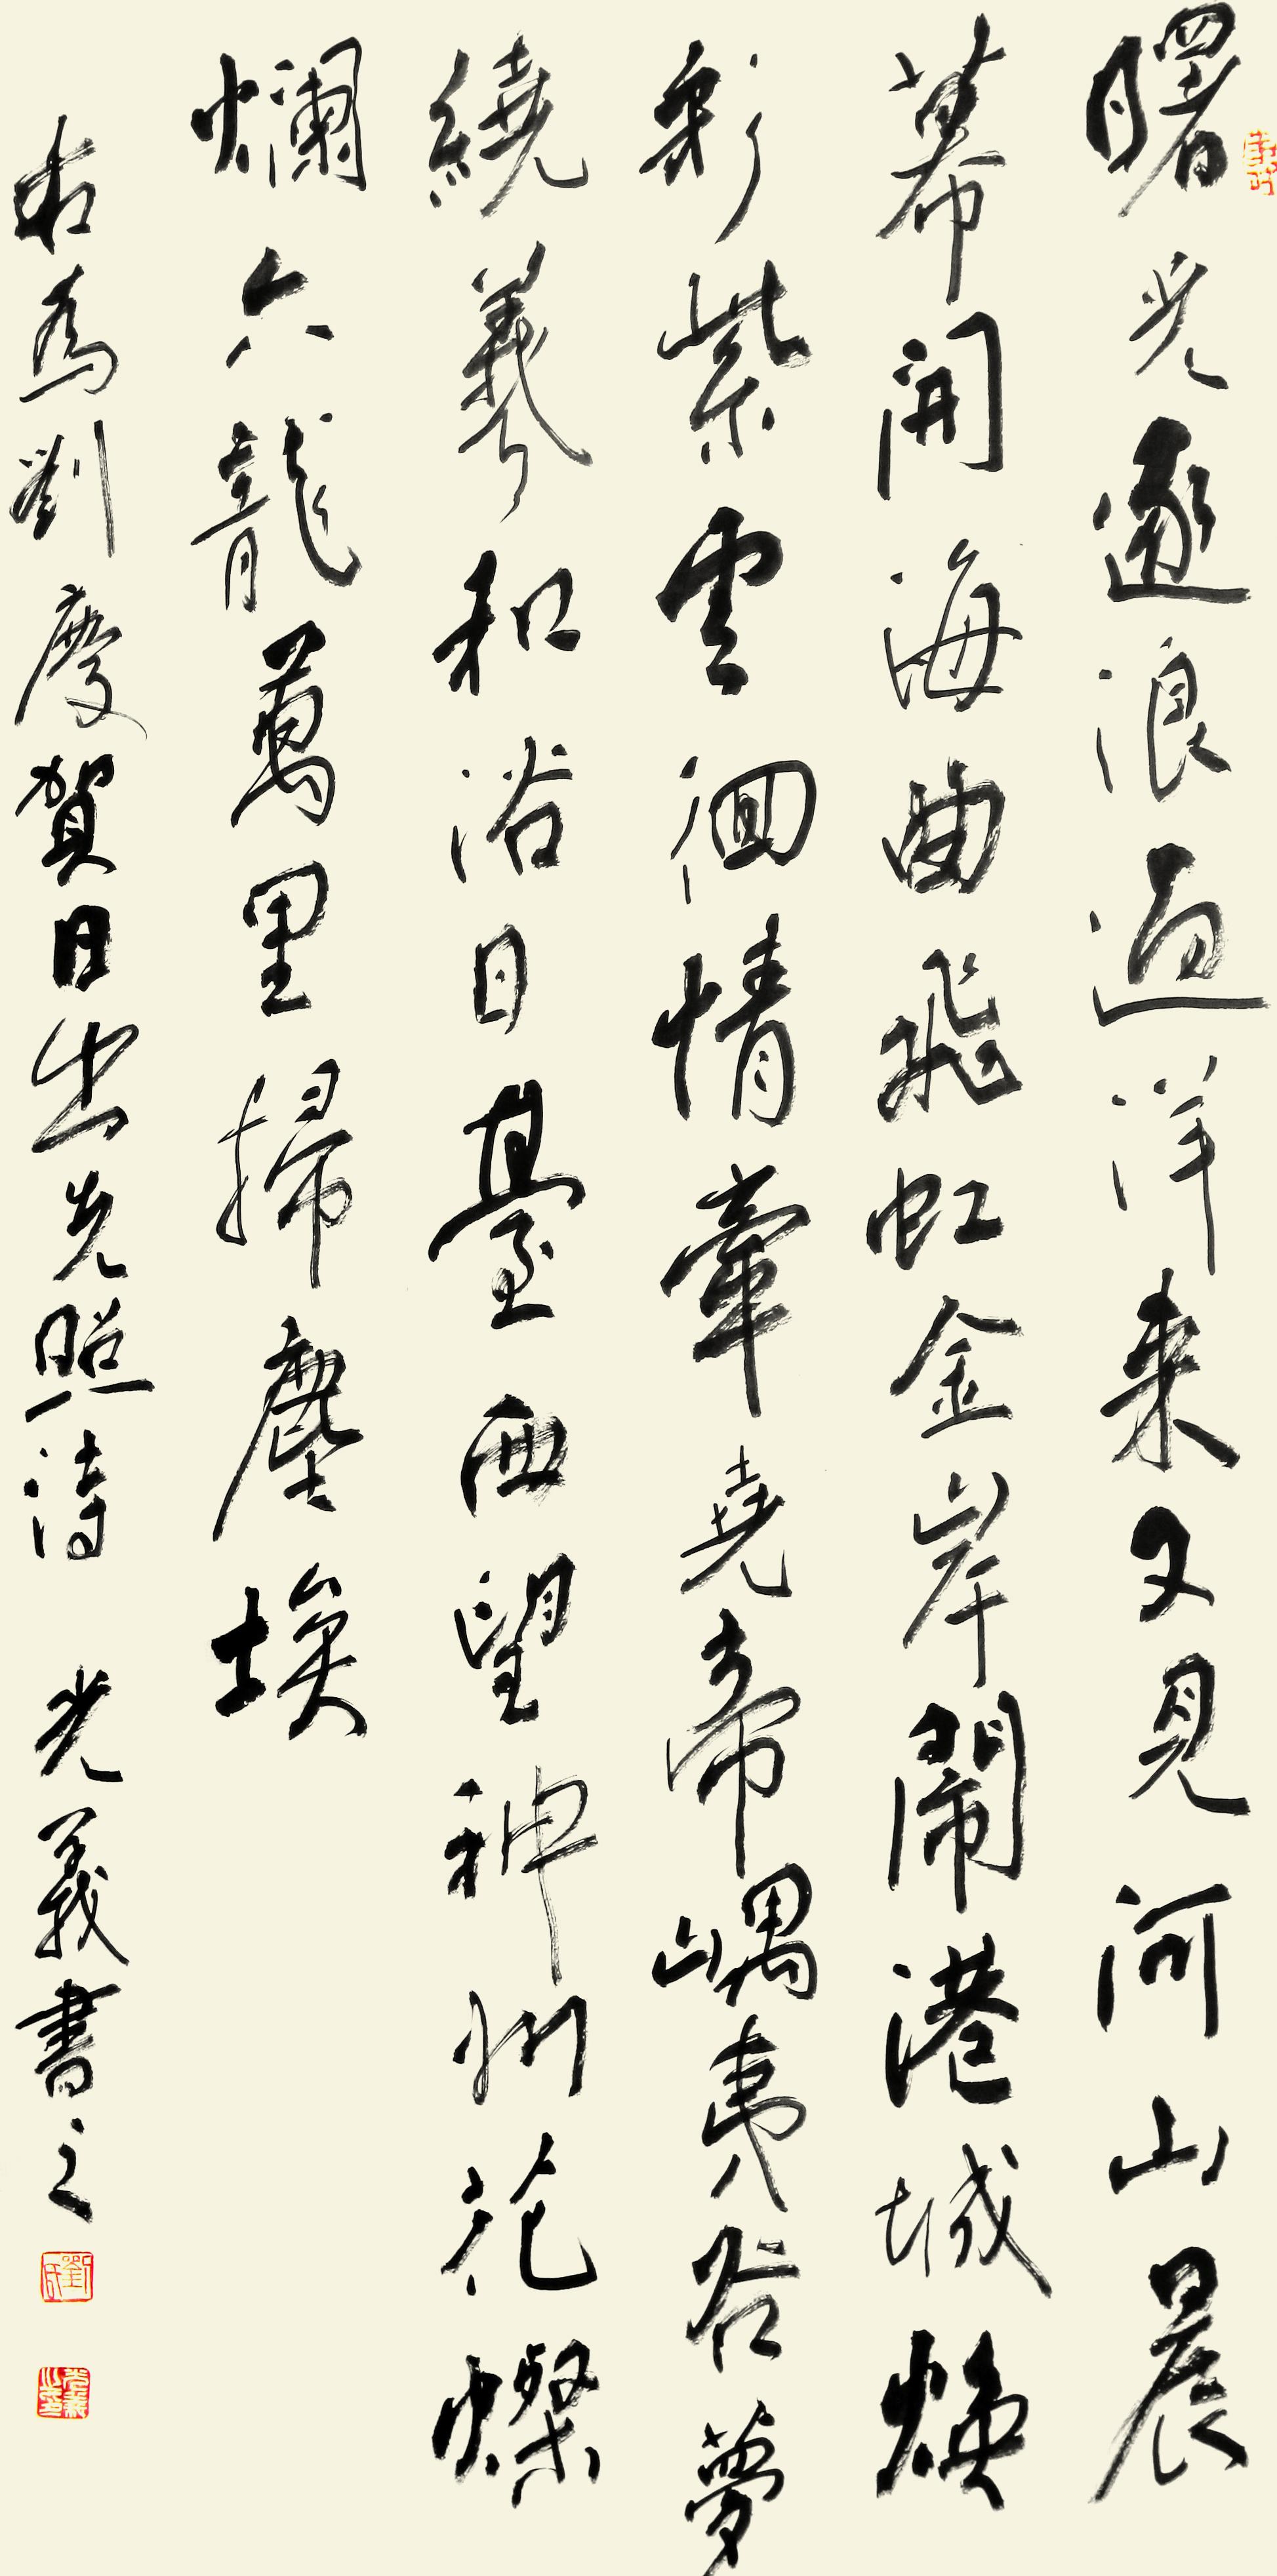 曙光逐浪過洋来又見河山晨
幕開海曲飛虹金岸鬧港城焕
彩紫雲徊情牽堯帝嵎夷谷夢
繞羲和浴日臺西望神州花燦
爛六龍萬里掃塵埃
右為劉慶賀日出先照詩 光義書之